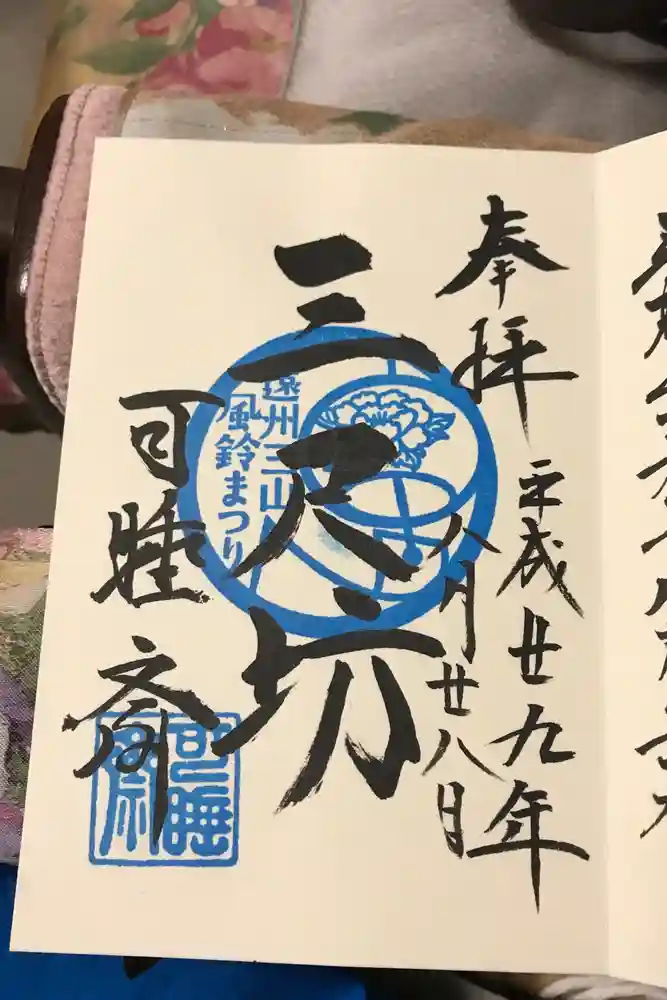 奉拝
平成廿九年
八月廿八日
三尺坊
遠州三山
「風鈴まつり
可睡斎
可睡
齋